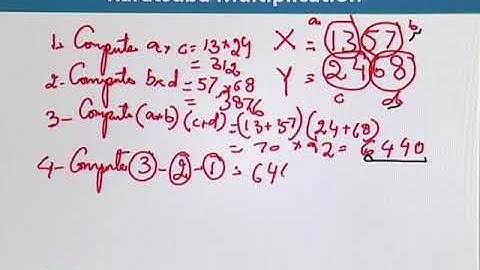 Karatsuba Multiplication
a b
1. Compute a × c = 13 * 24 X = 13 57
= 312 Y = 24 68
2- Compute b×d = 57 * 68 c d
= 3876
3 - Compute (a+b) (c+d) = (13+57) (24+68)
= 70 * 92 = 6440
4- Compute 3 - 2 - 1 = 64